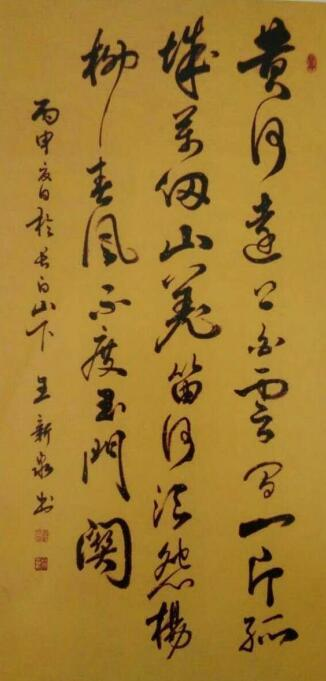 黄河远上白云间一片孤
城万仞山羌笛何须怨杨
柳春风不度玉门關
丙申夏日於长白山下 王新泉书